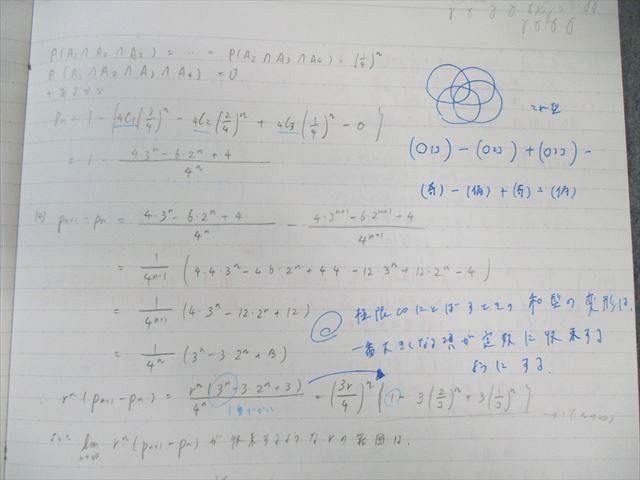 P(A₁∩A₂∩A₃) = … = P(A₂∩A₃∩A₄) = (1/4)ⁿ
P(A₁∩A₂∩A₃∩A₄) = 0
pₙ = 1 - {₄C₁(3/4)ⁿ - ₄C₂(2/4)ⁿ + ₄C₃(1/4)ⁿ - 0}
= 1 - (4・3ⁿ - 6・2ⁿ + 4)/4ⁿ
(013) - (023) + (033) -
(奇) - (偶) + (奇) - (偶)
(4) pₙ₊₁ - pₙ = (4・3ⁿ - 6・2ⁿ + 4)/4ⁿ - (4・3ⁿ⁺¹ - 6・2ⁿ⁺¹ + 4)/4ⁿ⁺¹
= 1/4ⁿ⁺¹ (4・4・3ⁿ - 4・6・2ⁿ + 4・4 - 12・3ⁿ + 12・2ⁿ - 4)
= 1/4ⁿ⁺¹ (4・3ⁿ - 12・2ⁿ + 12)
極限 ∞にとばすときの 和型の変形は、
一番大きくなる項が定数に収束する
ようにする.
= 1/4ⁿ (3ⁿ - 3・2ⁿ + 3)
∴ rⁿ(pₙ₊₁ - pₙ) = rⁿ(3ⁿ - 3・2ⁿ + 3)/4ⁿ = (3r/4)ⁿ {1 - 3(2/3)ⁿ + 3(1/3)ⁿ}
→ 1 (n→∞)
よって lim n→∞ rⁿ(pₙ₊₁ - pₙ) が収束するようなrの範囲は、